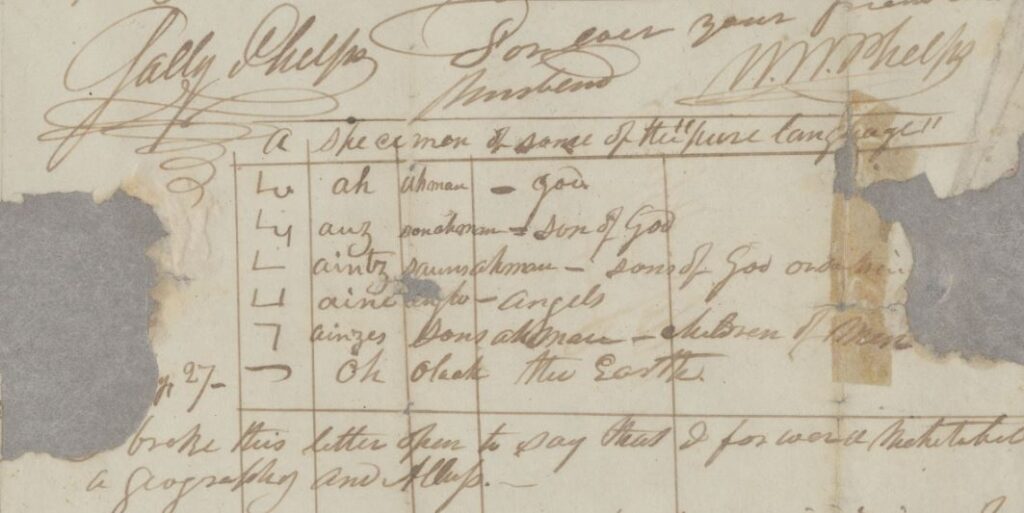 Sally Phelps
For ever your friend
Husband W. W. Phelps
A specimen of some of the "pure language"
ah ahman - god
auz sonahman - son of God
aintz saunsahman - sons of God or
aine anglo - Angels
ainzes sonsahman - children of men
oh oleah the Earth
27-
broke this letter open to say that I forward Mehitabel
a geography and Atlass. -